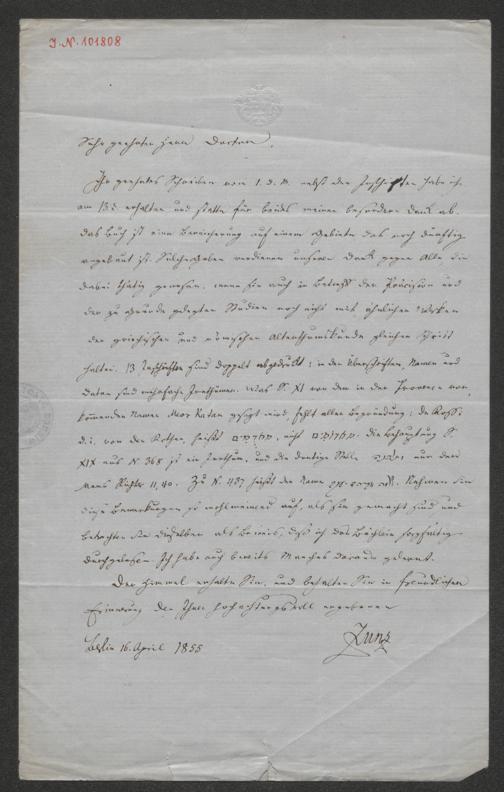 I. N. 101808
Sehr geehrter Herr Doctor,
Ihr geehrtes Schreiben vom 1. d. M. nebst den Inschriften habe ich
am 13 d. erhalten und statte für beides meinen besondern Dank ab.
Das Buch ist eine Bereicherung auf einem Gebiete das noch dürftig
angebaut ist. Solche Gaben verdienen unsern Dank gegen alle, die
dabei thätig gewesen, wenn sie auch in Betreff der Präcision und
der zu Grunde gelegten Studien noch nicht mit ähnlichen Werken
der griechischen und römischen Alterthumskunde gleichen Schritt
halten. 13 Inschriften sind doppelt abgedruckt; in den Überschriften, Namen und
Daten sind mehrfache Irrthümer. Was S. XI von dem in der Provence vor-
kommenden Namen gesagt wird, fehlt aller Begründung; de Ross.
d. i. von der heißt nicht die Behauptung S.
XIX aus N. 365 ist ein Irrthum, und die dortige Stelle nur der
11, 40. Zu N. 437 heißt der Name Nehmen Sie
diese Bemerkungen so wohlmeinend auf, als sie gemacht sind und
betrachten Sie dieselben als Beweis, daß ich das Büchlein sorgfältig
durchgelesen. Ich habe auch bereits Manches daraus gelernt.
Der Himmel erhalte Sie, und behalten Sie in freundlicher
Erinnerung den Ihnen hochachtungsvoll ergebenen
Berlin 16. April 1855
Zunz